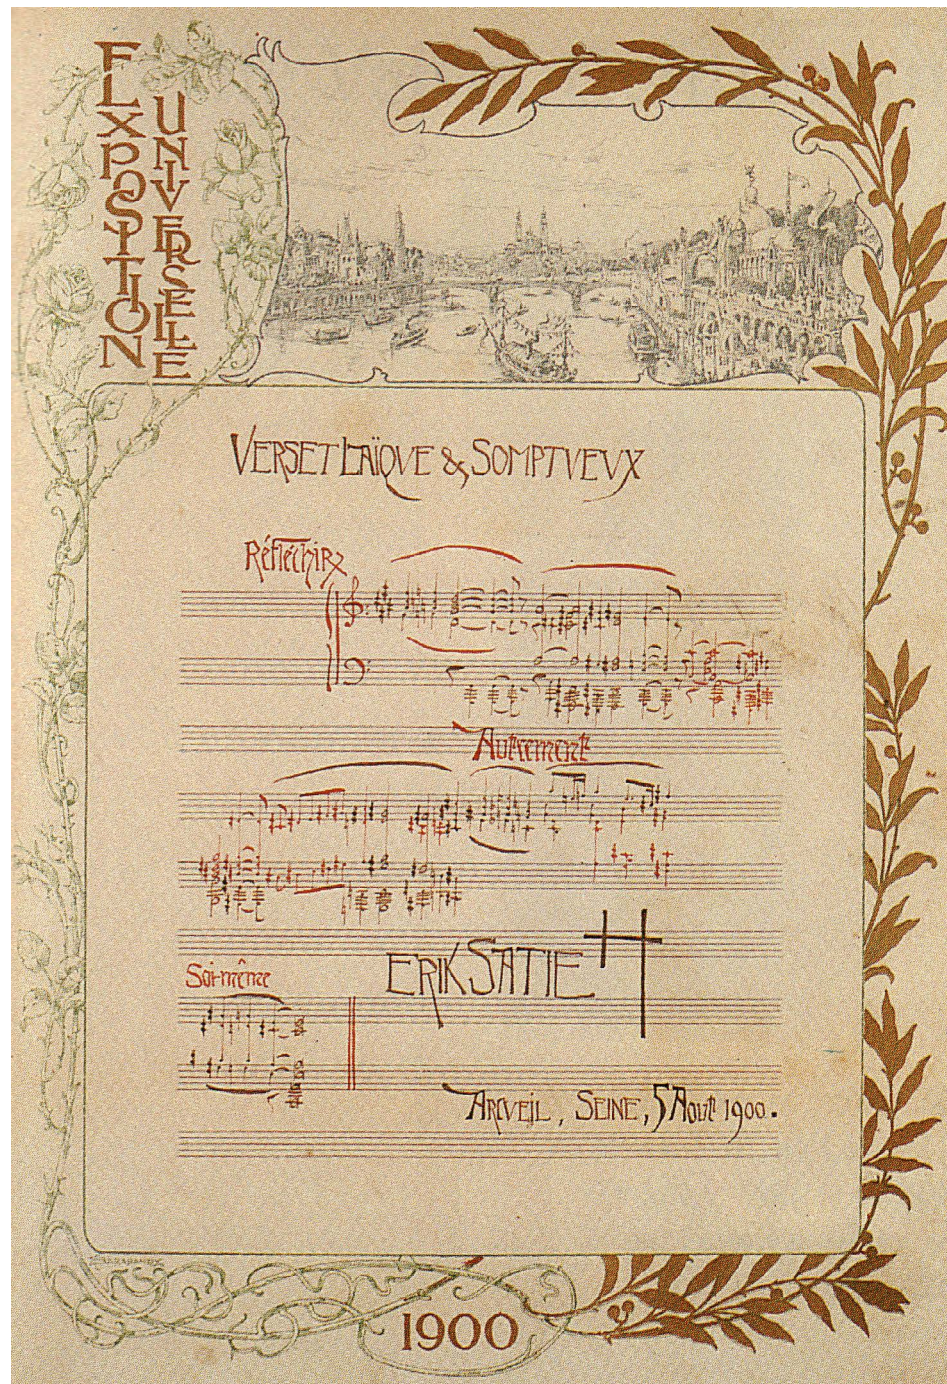 EXPOSITION
UNIVERSELLE
VERSET LAÏQVE & SOMPTVEVX
Réfléchir
Autrement
ERIK SATIE
Soi-même
ARCVEIL, SEINE, 5 Aout 1900.
1900